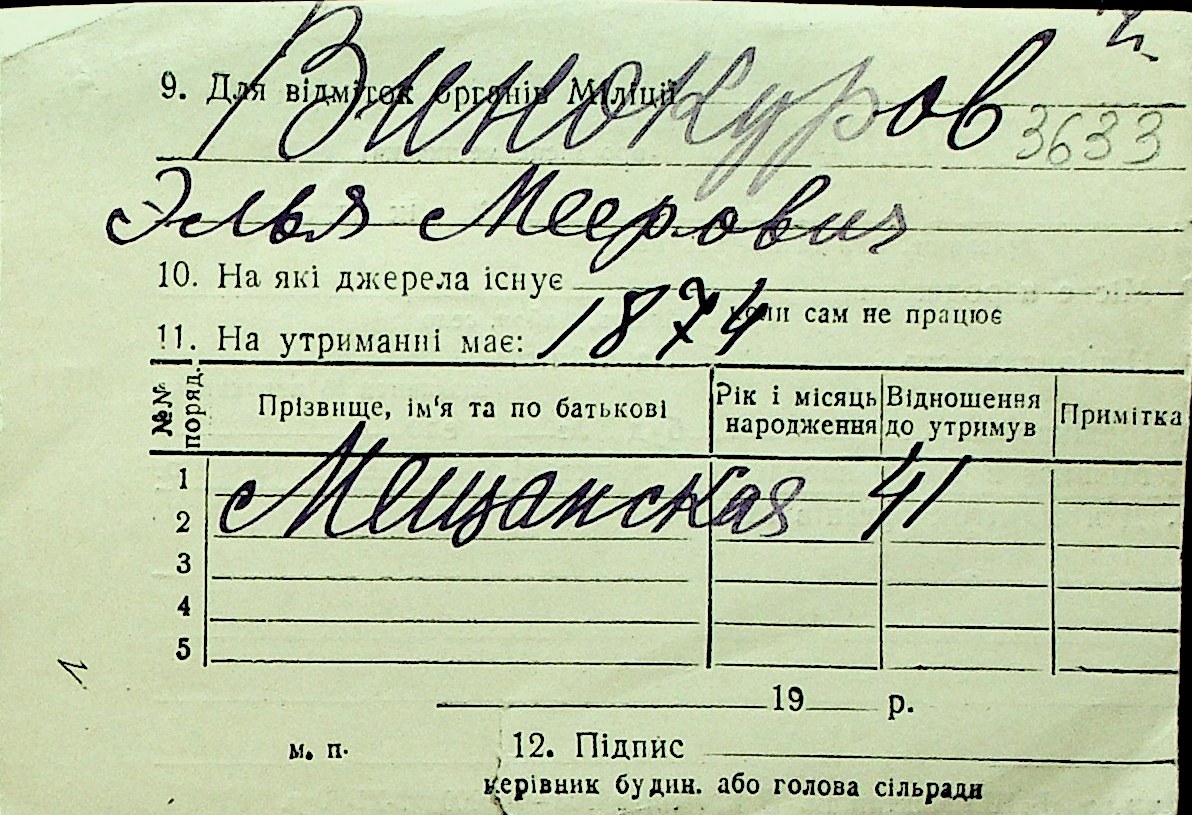 Винокуров
9. Для відміток органів Міліції
3633
Элья Меерович
10. На які джерела існує
коли сам не працює
11. На утриманні має:
1874
№№ поряд.
Прізвище, ім'я та по батькові
Рік і місяць народження
Відношення до утримув
Примітка
1
Мещанская 41
2
3
4
5
19 р.
м. п.
12. Підпис
керівник будин. або голова сільради